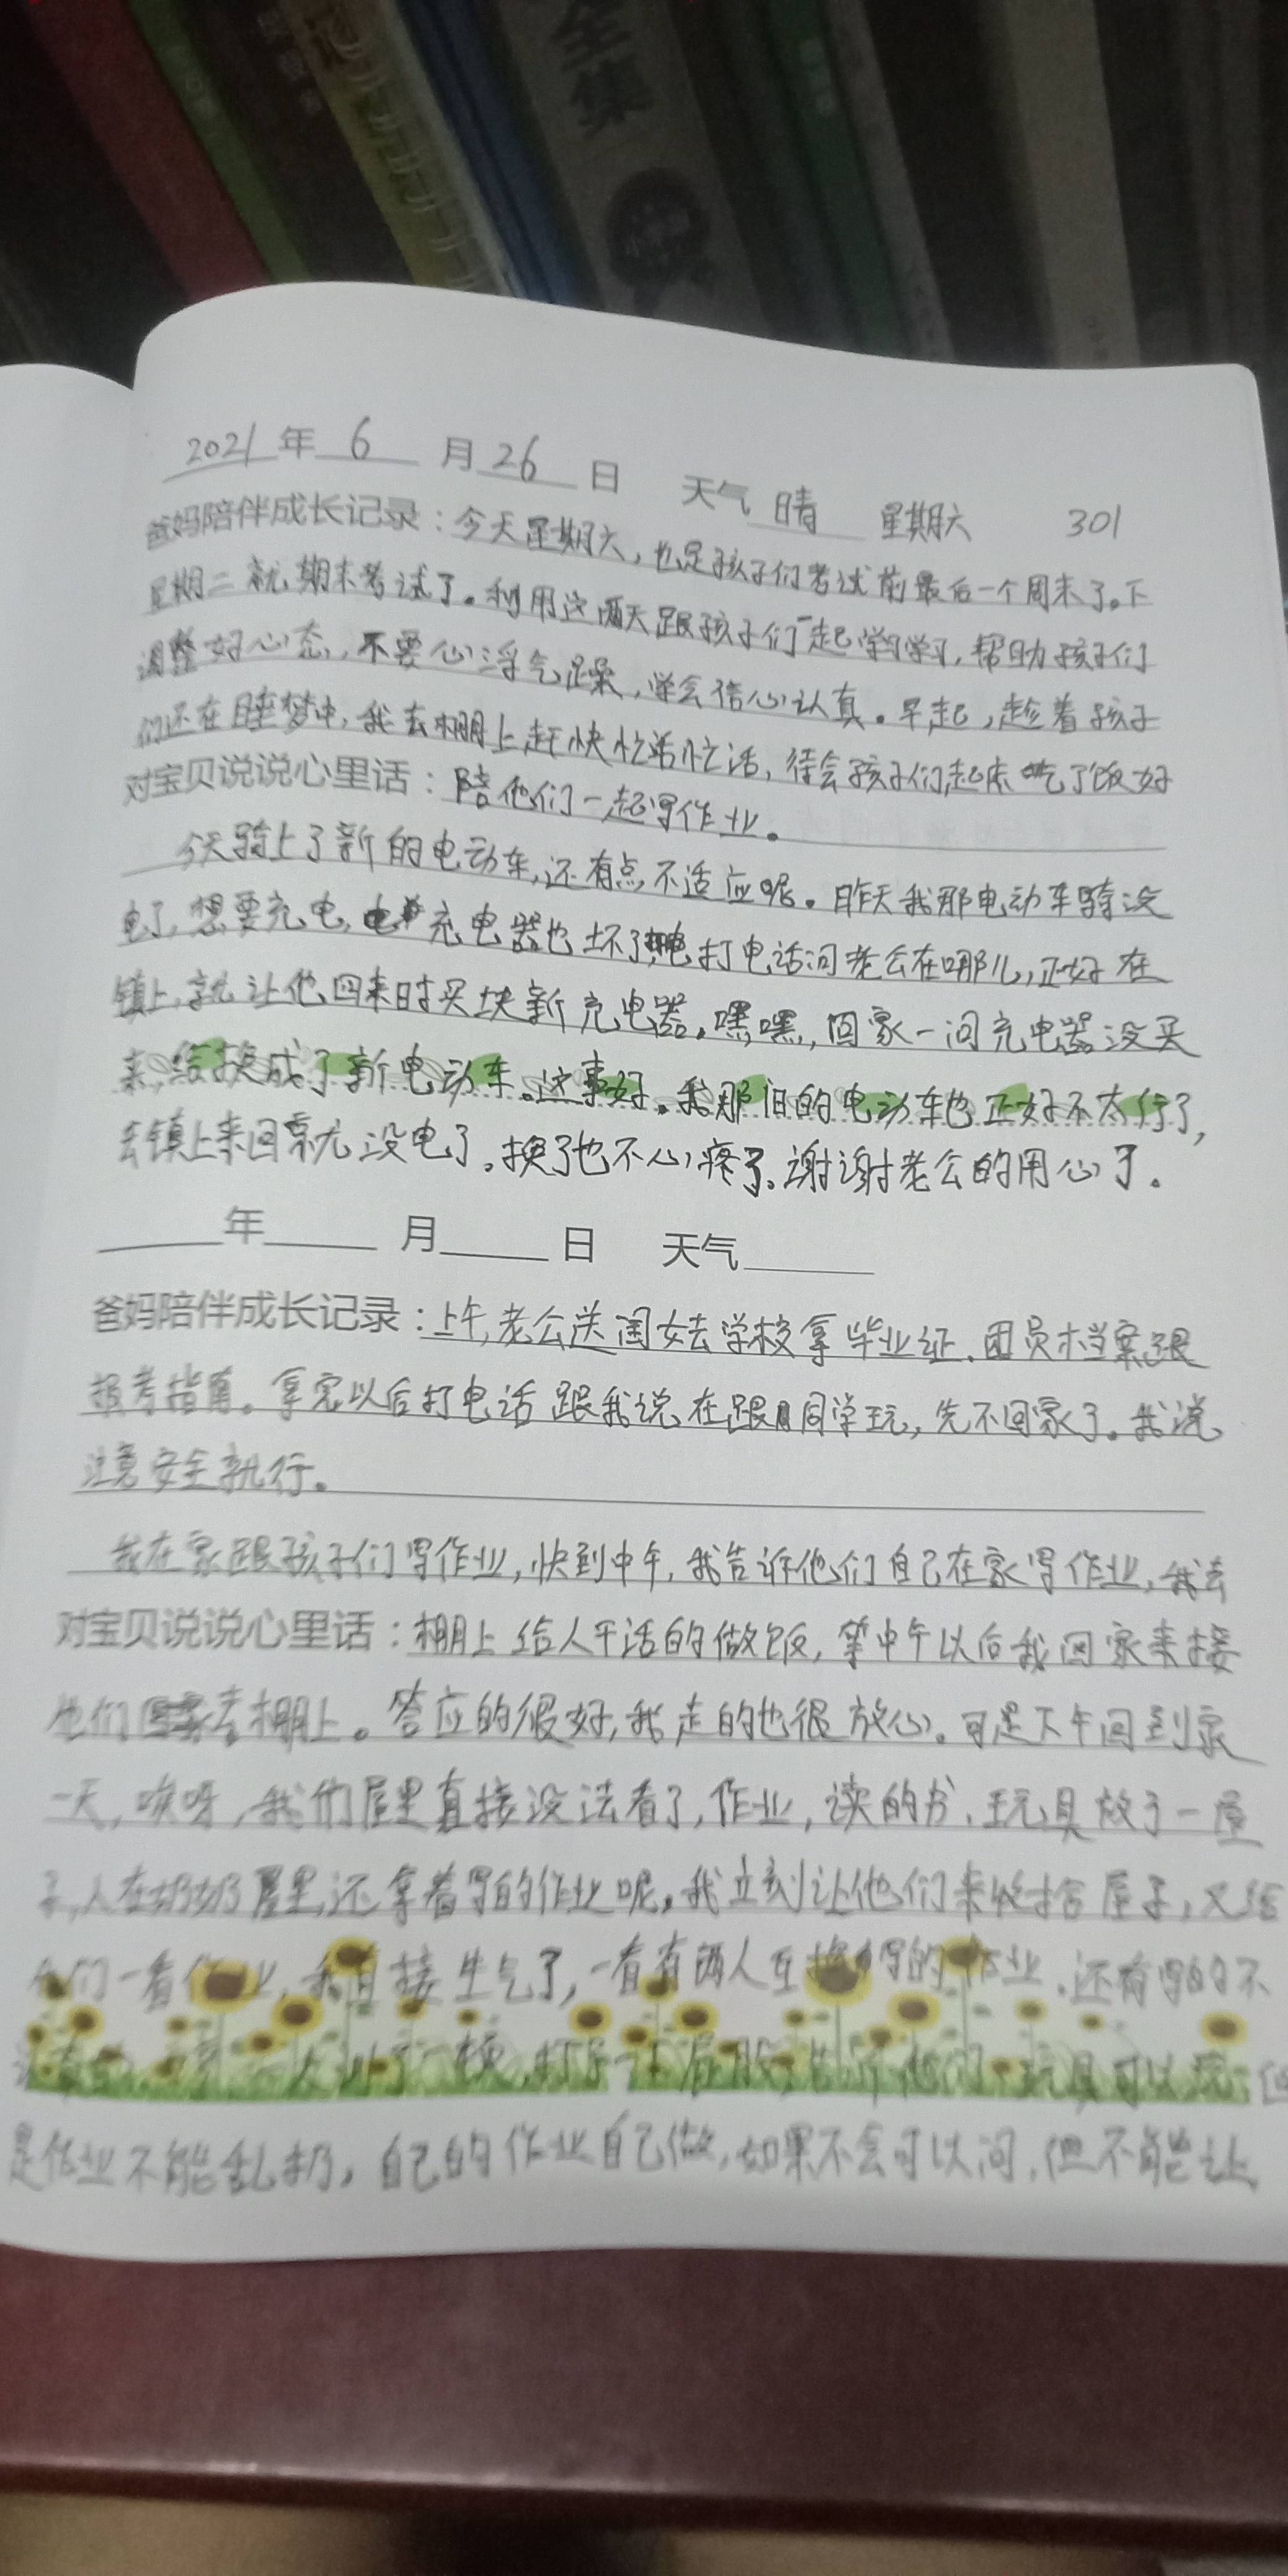 全集
2021年 6 月 26 日 天气 晴 星期六 301
爸妈陪伴成长记录：今天星期六，也是孩子们考试前最后一个周末了。下
星期二就期末考试了。利用这两天跟孩子们一起学习学习，帮助孩子们
调整好心态，不要心浮气躁，学会信心认真。早起，趁着孩子
们还在睡梦中，我去棚上赶快忙活忙活，待会孩子们起床吃了饭好
对宝贝说说心里话：陪他们一起写作业。
今天骑上了新的电动车，还有点不适应呢。昨天我那电动车骑没
电了，想要充电，充电器也坏了，打电话问老公在哪儿，正好在
镇上，就让他回来时买块新充电器。嘿嘿，回家一问充电器没买
来，给换成了新电动车。这事好。我那旧的电动车也正好不太行了，
去镇上来回就没电了。换了也不心疼了。谢谢老公的用心了。
年 月 日 天气
爸妈陪伴成长记录：上午，老公送闺女去学校拿毕业证、团员档案跟
报考指南。拿完以后打电话跟我说，在跟同学玩，先不回家了。我说
注意安全就行。
我在家跟孩子们写作业，快到中午，我告诉他们自己在家写作业，我去
对宝贝说说心里话：棚上给人干活的做饭，等中午以后我回家来接
他们去棚上。答应的很好，我走的也很放心。可是下午回到家
一天，哎呀，我们屋里直接没法看了，作业，读的书、玩具放了一屋
子，人在奶奶屋里，还拿着写的作业呢。我立刻让他们来收拾屋子，又给
他们一看作业，我直接生气了，一看有两人互换写的作业，还有写的不
训了一顿，打了一下屁股，告诉他们，玩具可以玩，但
是作业不能乱扔，自己的作业自己做，如果不会可以问，但不能让